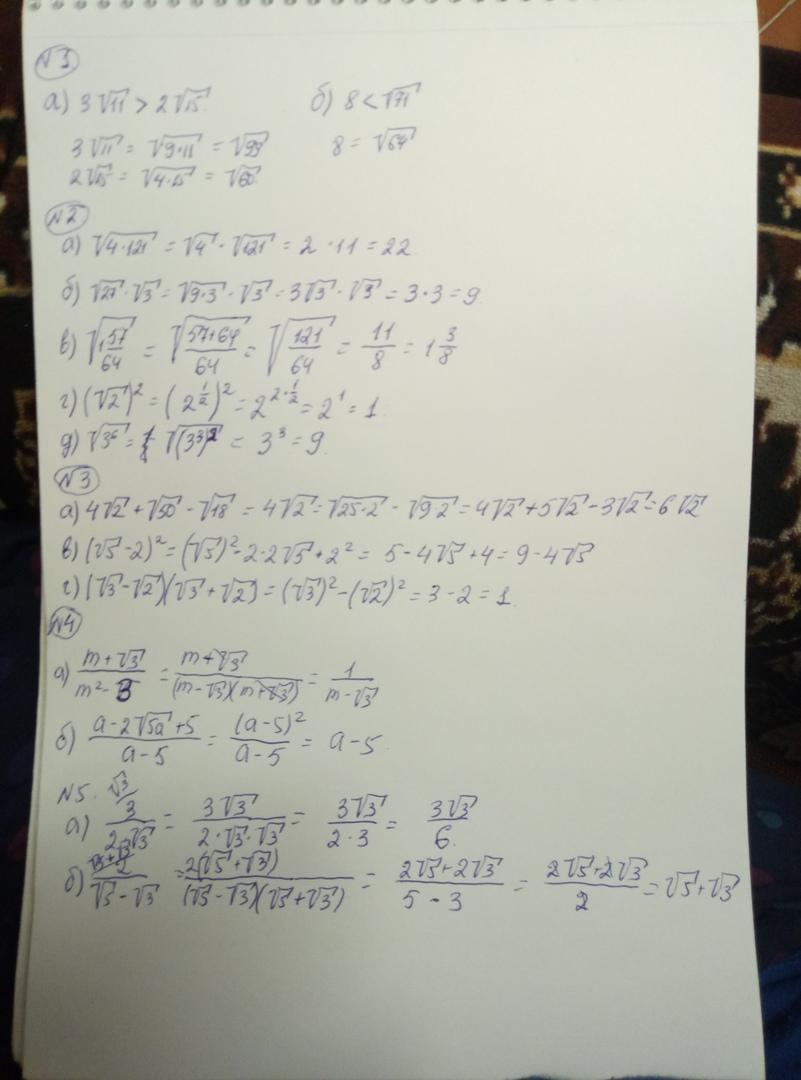 №1
а) 3√11 > 2√15   б) 8 < √71
3√11 = √9·11 = √99   8 = √64
2√15 = √4·15 = √60
№2
а) √4·121 = √4 · √121 = 2 · 11 = 22.
б) √27 · √3 = √9·3 · √3 = 3√3 · √3 = 3·3 = 9.
в) √1 57/64 = √(57+64)/64 = √121/64 = 11/8 = 1 3/8
г) (√2)² = (2^1/2)² = 2^2·1/2 = 2¹ = 1.
д) √3⁶ = √(3³)² = 3³ = 9.
№3
а) 4√2 + √50 - √18 = 4√2 = √25·2 - √9·2 = 4√2 + 5√2 - 3√2 = 6√2
в) (√5 - 2)² = (√5)² - 2·2√5 + 2² = 5 - 4√5 + 4 = 9 - 4√5
г) (√3 - √2)(√3 + √2) = (√3)² - (√2)² = 3 - 2 = 1.
№4
а) (m + √3)/(m² - 3) = (m + √3)/((m - √3)(m + √3)) = 1/(m - √3)
б) (a - 2√5a + 5)/(a - 5) = (a - 5)²/(a - 5) = a - 5.
№5.
а) √3/ 3/(2√3) = 3√3/(2·√3·√3) = 3√3/(2·3) = 3√3/6.
б) √5+√3/ 2/(√5 - √3) = 2(√5 + √3)/((√5 - √3)(√5 + √3)) = (2√5 + 2√3)/(5 - 3) = (2√5 + 2√3)/2 = √5 + √3